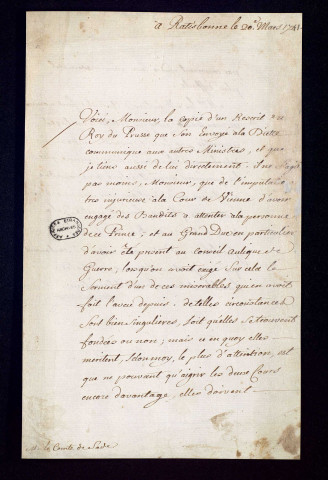 a Ratisbonne le 20e Mars 1741
Voici, Monsieur, la copie d'un Rescrit du
Roy de Prusse que son Envoyé a la Diete
communique aux autres Ministres, et que
je tiens aussi de lui directement. il ne s'agit
pas moins, Monsieur, que de l'imputation
tres injurieuse a la Cour de Vienne d'avoir
engagé des Bandits a attenter a la personne
de ce Prince; et au Grand Duc en particulier
d'avoir été present au conseil Aulique de
Guerre, lorsqu'on avoit exigé sur cela le
Serment d'un de ces miserables qui en avoit
fait l'aveu depuis. de telles circonstances
sont bien singulieres, soit qu'elles se trouvent
fondées ou non; mais ce en quoy elles
meritent, Monsieur, le plus d'attention, est
que ne pouvant qu'aigrir les deux Cours
encore davantage, elles doivent
M. le Comte de Sade